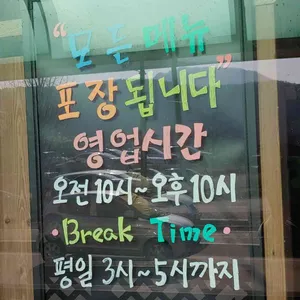 “모든 메뉴
포장됩니다”
영업시간
오전10시~오후10시
·Break Time·
평일 3시~5시까지